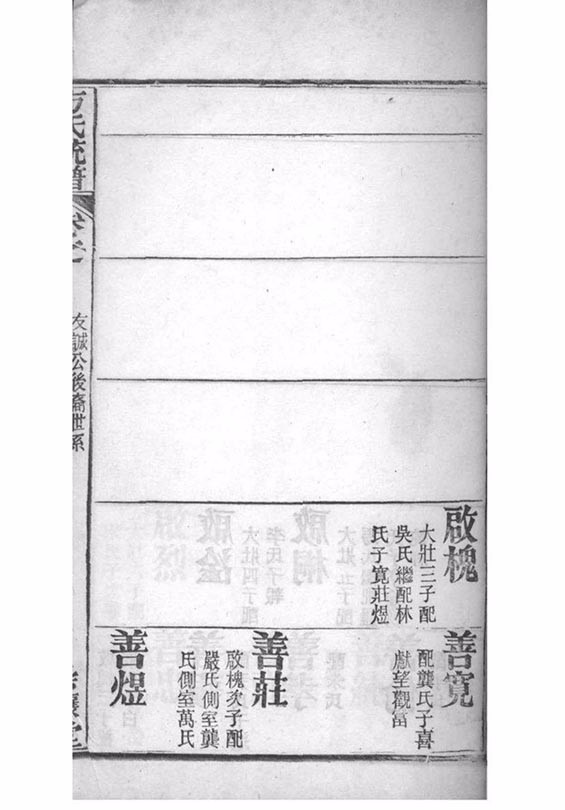 啟槐
大壯三子配
吳氏繼配林
氏子寬莊煜
善寬
配龔氏子喜
獻望觀富
善莊
啟槐次子配
嚴氏側室龔
氏側室萬氏
善煜
氏統譜
友誠公後裔世系